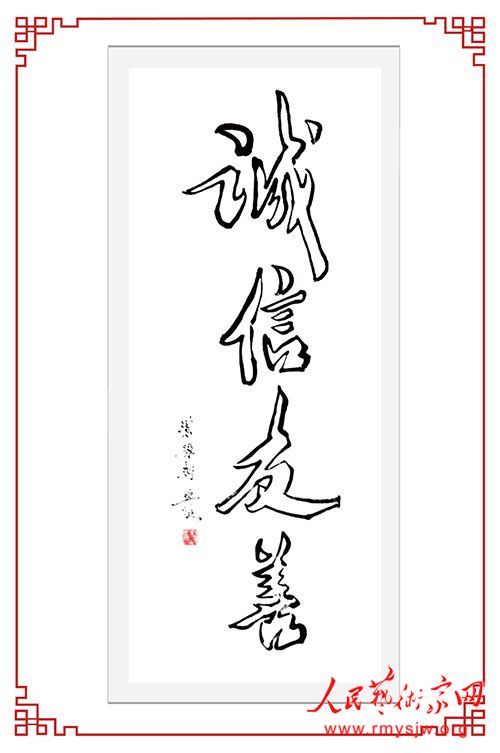 诚信友善
人民藝術家网
www.rmysjw.org